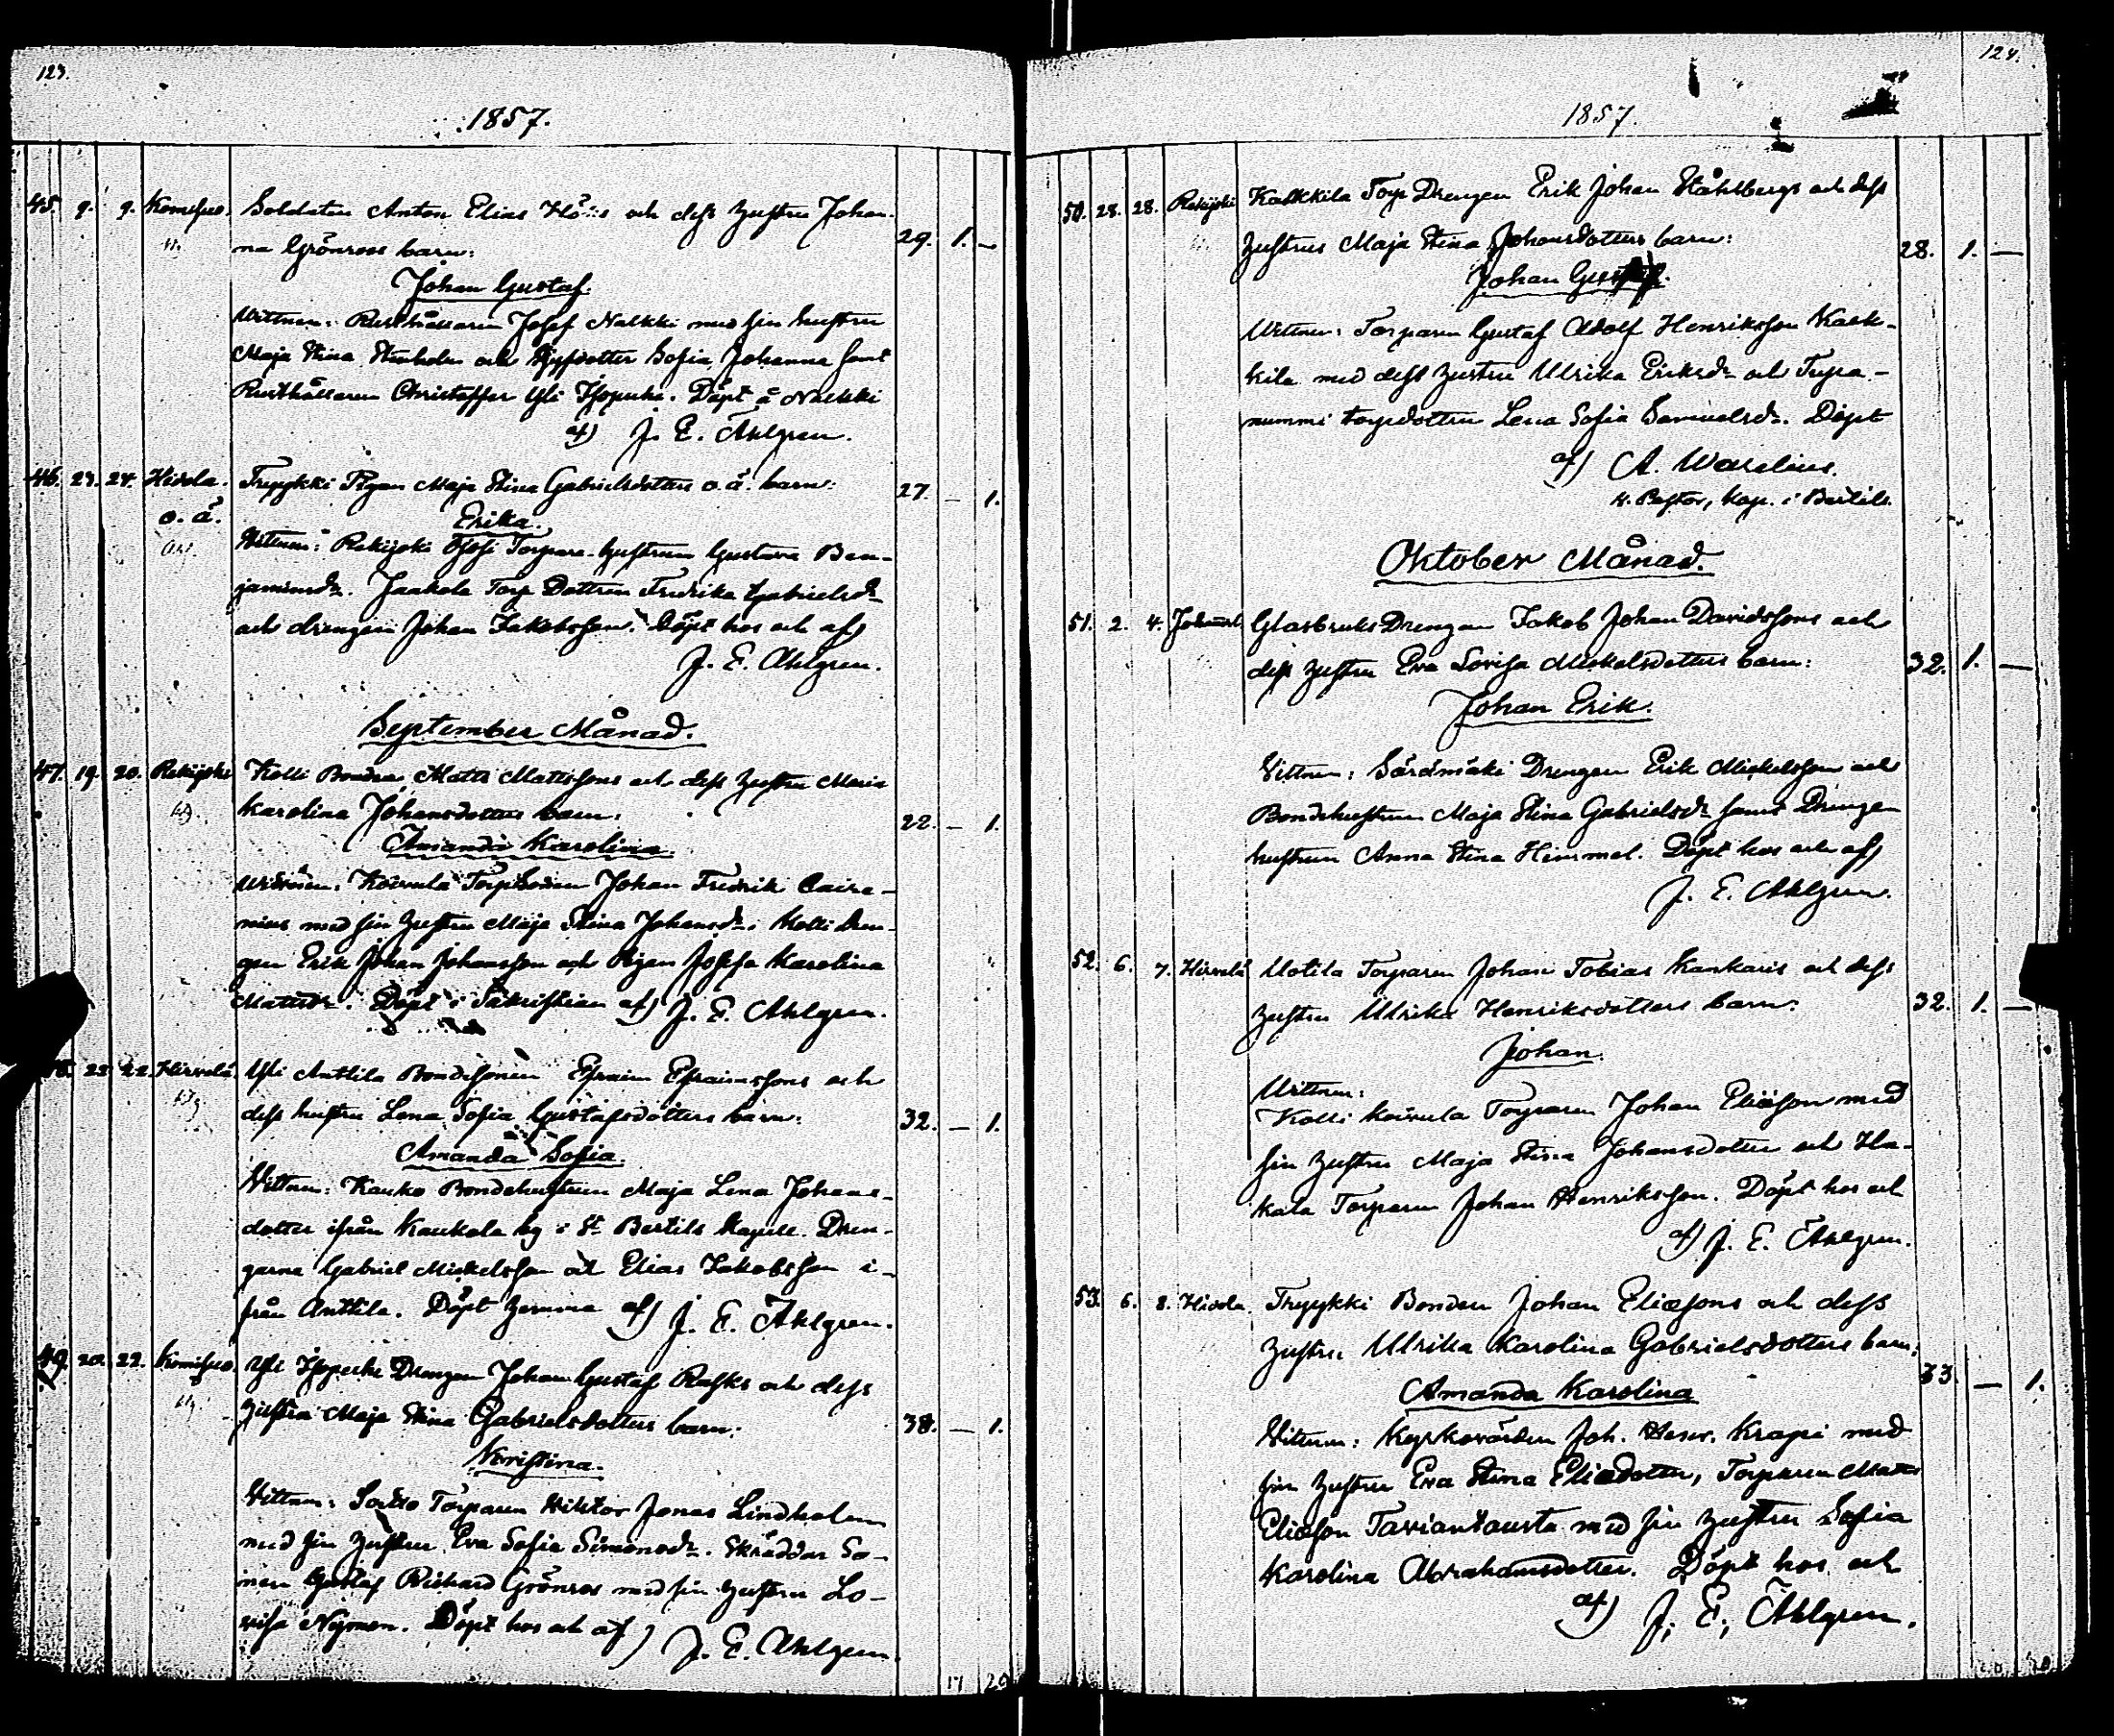 123.
1857.
45. 9. 9. Komisuo. Soldaten Anton Elias och dess hustru Johan-
na Grönroos barn: 29. 1. —
Johan Gustaf.
Vittnen: Rusthållaren Josef Nalkki med sin hustru
Maja Stina och Sofia Johanna samt
Rusthållaren Christoffer Yli Isopuhe. Döpt å Nalkki
af) J. E. Ahlgren.
46. 23. 24. Hirvola. Trypykki Pigan Maja Stina Gabrielsdotters o. ä. barn: 27. — 1.
o. ä.
Erika.
Vittnen: Rekijoki Torpare-hustrun Gustava Ben-
jaminsdr. Jaakola Torp Dottren Fredrika Gabrielsdr
och drengen Johan Jakobsson. Döpt hos och af)
J. E. Ahlgren.
September Månad.
47. 19. 20. Rekijoki Kolli Bonden Matts Mattssons och dess hustru Maria
Karolina Johansdotters barn: 22. — 1.
Amanda Karolina.
Vittnen: Koivula Johan Fredrik
med sin hustru Maja Stina Johansdr, Kolli Dren-
gen Erik Johan Johansson och Pigan Josefa Karolina
Mattsdr. Döpt i Sakristian af) J. E. Ahlgren.
48. 22. 22. Hirvelä. Yli Anttila Bondesonen Efraim Efraimssons och
dess hustru Lena Sofia Gustafsdotters barn: 32. — 1.
Amanda Sofia.
Vittnen: Kauko Bondehustrun Maja Lena Johans-
dotter ifrån Kaukola by i St. Bertils Kapell. Dren-
garne Gabriel Mickelsson och Elias Jakobsson i-
från Anttila. Döpt hemma af) J. E. Ahlgren.
49. 20. 22. Komisuo. Yli Isopuhe Drengen Johan Gustaf Rasks och dess
hustru Maja Stina Gabrielsdotters barn: 38. — 1.
Kristina.
Vittnen: Torparen Wiktor Jonas Lindholm
med sin hustru Eva Sofia Simonsdr. Skräddar So-
nen Gustaf Richard Grönroos med sin hustru Lo-
visa Nyman. Döpt hos och af) J. E. Ahlgren.
17 20
124.
1857.
50. 28. 28. Rekijoki Kalkkila Torp Drengen Erik Johan Ståhlbergs och dess
hustrus Maja Stina Johansdotters barn: 28. 1. —
Johan Gustaf.
Vittnen: Torparen Gustaf Adolf Henriksson Kalk-
kila med dess hustru Ulrika Eriksdr och Tupa-
nummi torpdottren Lena Sofia Samuelsdr. Döpt
af) A. Warelius.
v. Pastor, Kap. i Bertils
Oktober Månad.
51. 2. 4. Glasbruks Drengen Jakob Johan Davidssons och
dess hustru Eva Lovisa Mickelsdotters barn: 32. 1. —
Johan Erik.
Vittnen: Särämäki Drengen Erik Mickelsson och
Bondehustrun Maja Stina Gabrielsdr samt Drenge
hustrun Anna Stina Himmel. Döpt hos och af)
J. E. Ahlgren.
52. 6. 7. Hirvelä Uotila Torparen Johan Tobias Kankaris och dess
hustru Ulrika Henriksdotters barn: 32. 1. —
Johan.
Vittnen:
Kolli Koivula Torparen Johan Eliasson med
sin hustru Maja Stina Johansdotter och Ha-
kala Torparen Johan Henriksson. Döpt hos och
af) J. E. Ahlgren.
53. 6. 8. Hirvola. Trypykki Bonden Johan Eliasons och dess
hustru Ulrika Karolina Gabrielsdotters barn: 33 — 1.
Amanda Karolina
Vittnen: Kyrkovärden Joh. Henr. Krapi med
sin hustru Eva Stina Eliædotter, Torparen Matts
Eliæson Taviantausta med sin hustru Sofia
Karolina Abrahamsdotter. Döpt hos och
af) J. E. Ahlgren.